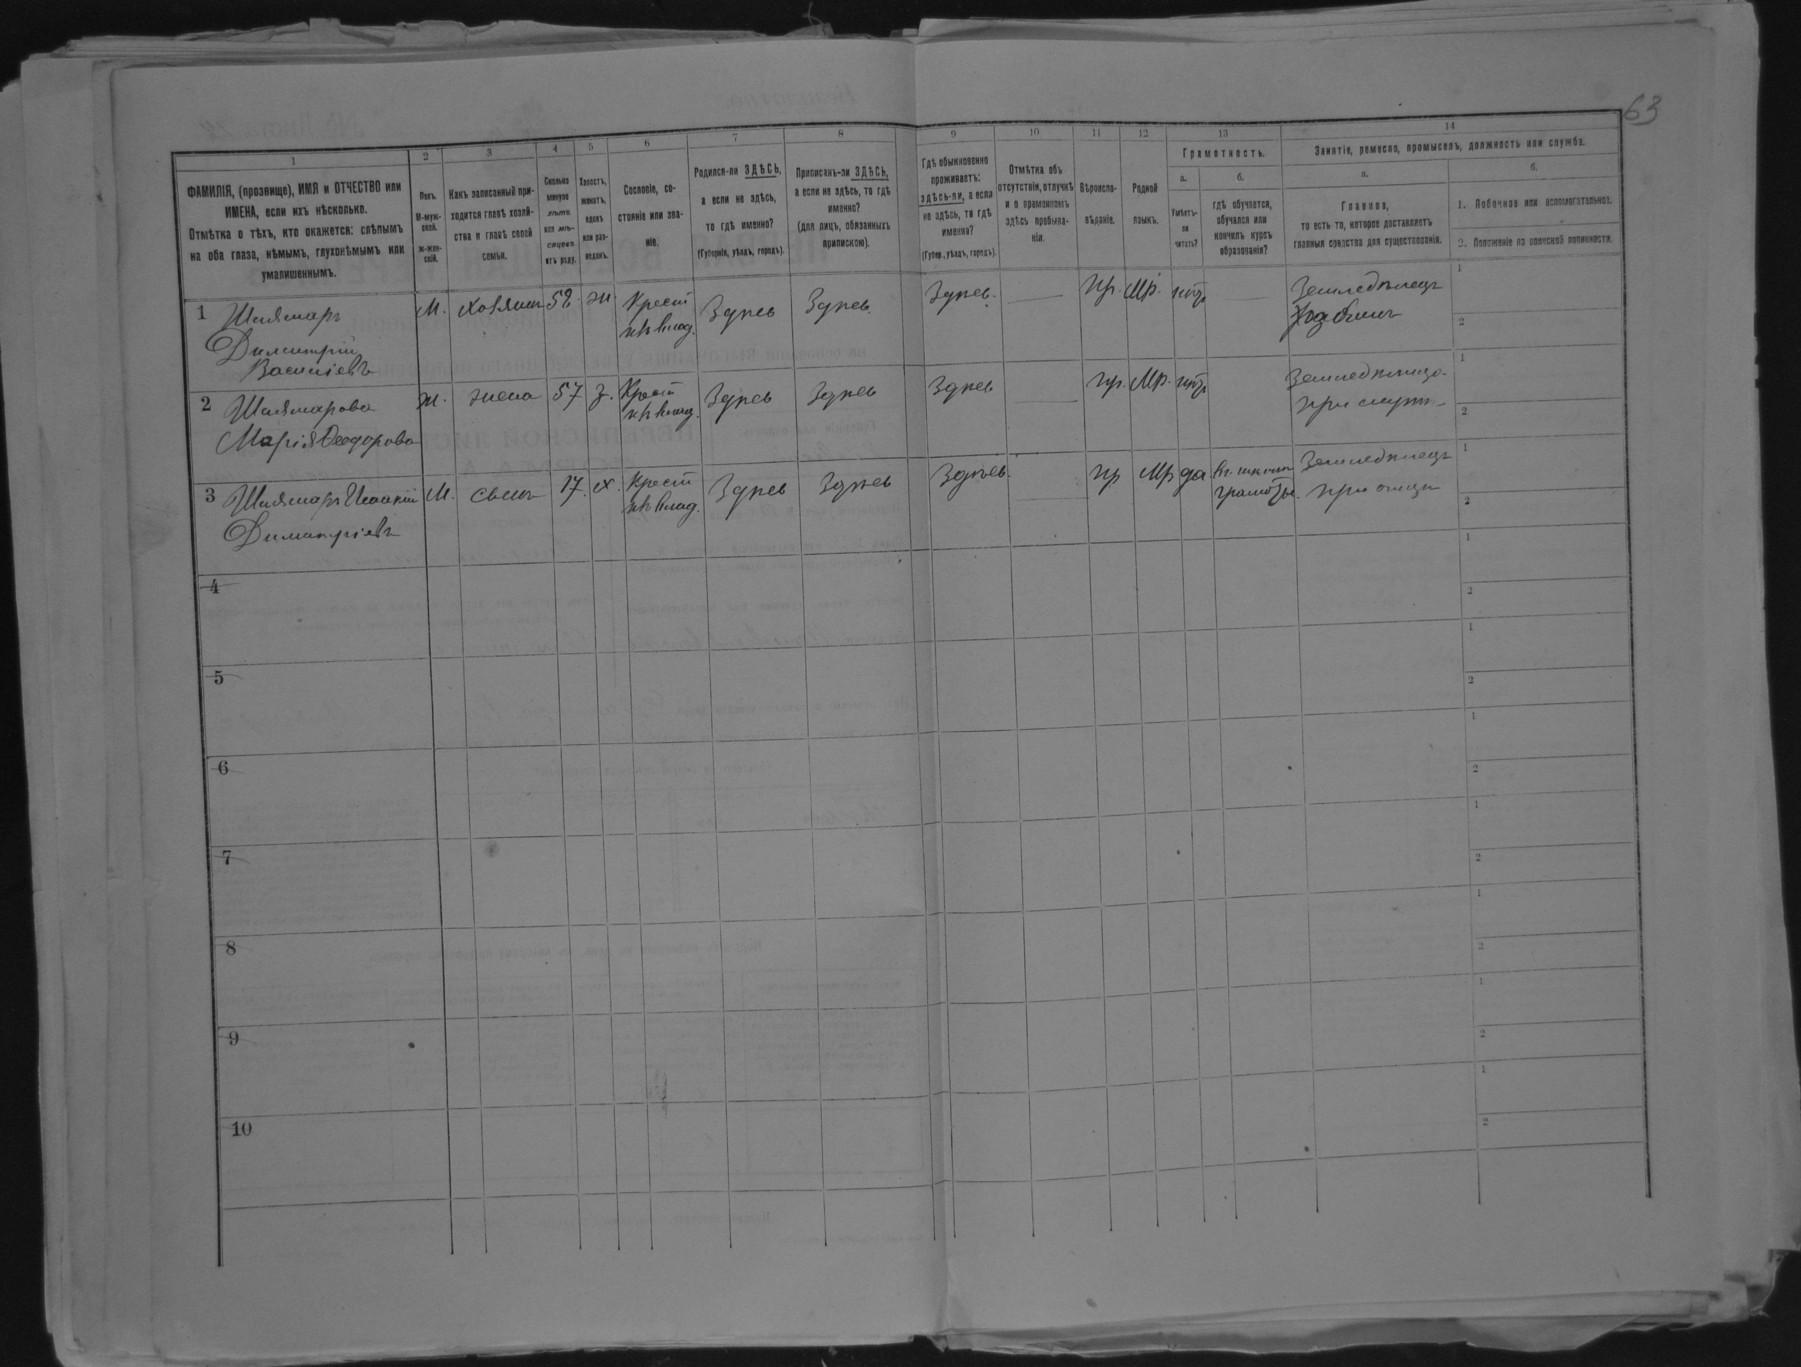 63
1 2 3 4 5 6 7 8 9 10 11 12 13 14
ФАМИЛІЯ, (прозвище), ИМЯ и ОТЧЕСТВО или ИМЕНА, если ихъ нѣсколько.
Отмѣтка о тѣхъ, кто окажется: слѣпымъ на оба глаза, нѣмымъ, глухонѣмымъ или умалишеннымъ.
Полъ.
М-мужской.
ж-женскій.
Какъ записанный приходится главѣ хозяйства и главѣ своей семьи.
Сколько минуло лѣтъ или мѣсяцевъ отъ роду.
Холостъ, женатъ, вдовъ или разведенъ.
Сословіе, состояніе или званіе.
Родился-ли ЗДѢСЬ,
а если не здѣсь,
то гдѣ именно?
(Губернія, уѣздъ, городъ).
Приписанъ-ли ЗДѢСЬ,
а если не здѣсь, то гдѣ именно?
(для лицъ, обязанныхъ припискою).
Гдѣ обыкновенно проживаетъ:
здѣсь-ли, а если не здѣсь, то гдѣ именно?
(Губер., уѣздъ, городъ).
Отмѣтка объ отсутствіи, отлучкѣ и о временномъ здѣсь пребываніи.
Вѣроисповѣданіе.
Родной языкъ.
Грамотность.
а.
Умѣетъ-ли читать?
б.
гдѣ обучается, обучался или кончилъ курсъ образованія?
Занятіе, ремесло, промыселъ, должность или служба.
а.
Главное,
то есть то, которое доставляетъ главныя средства для существованія.
б.
1. Побочное или вспомогательное.
2. Положеніе по воинской повинности.
1 Шлямаръ Димитрій Василіевъ М. хозяинъ 58 ж Крест Здесь Здесь Здесь — Пр. Мр. — Земледѣлецъ 1 2
2 Шлямарова Марія Ѳеодорова ж. жена 57 з. Крест Здесь Здесь Здесь пр. Мр. Земледѣлица при мужѣ 1 2
3 Шлямаръ Димитріевъ М. сынъ 17. х. Крест Здесь Здесь Здесь. Пр Мр да Земледѣлецъ при отцѣ 1 2
4 1 2
5 1 2
6 1 2
7 1 2
8 1 2
9 1 2
10 1 2